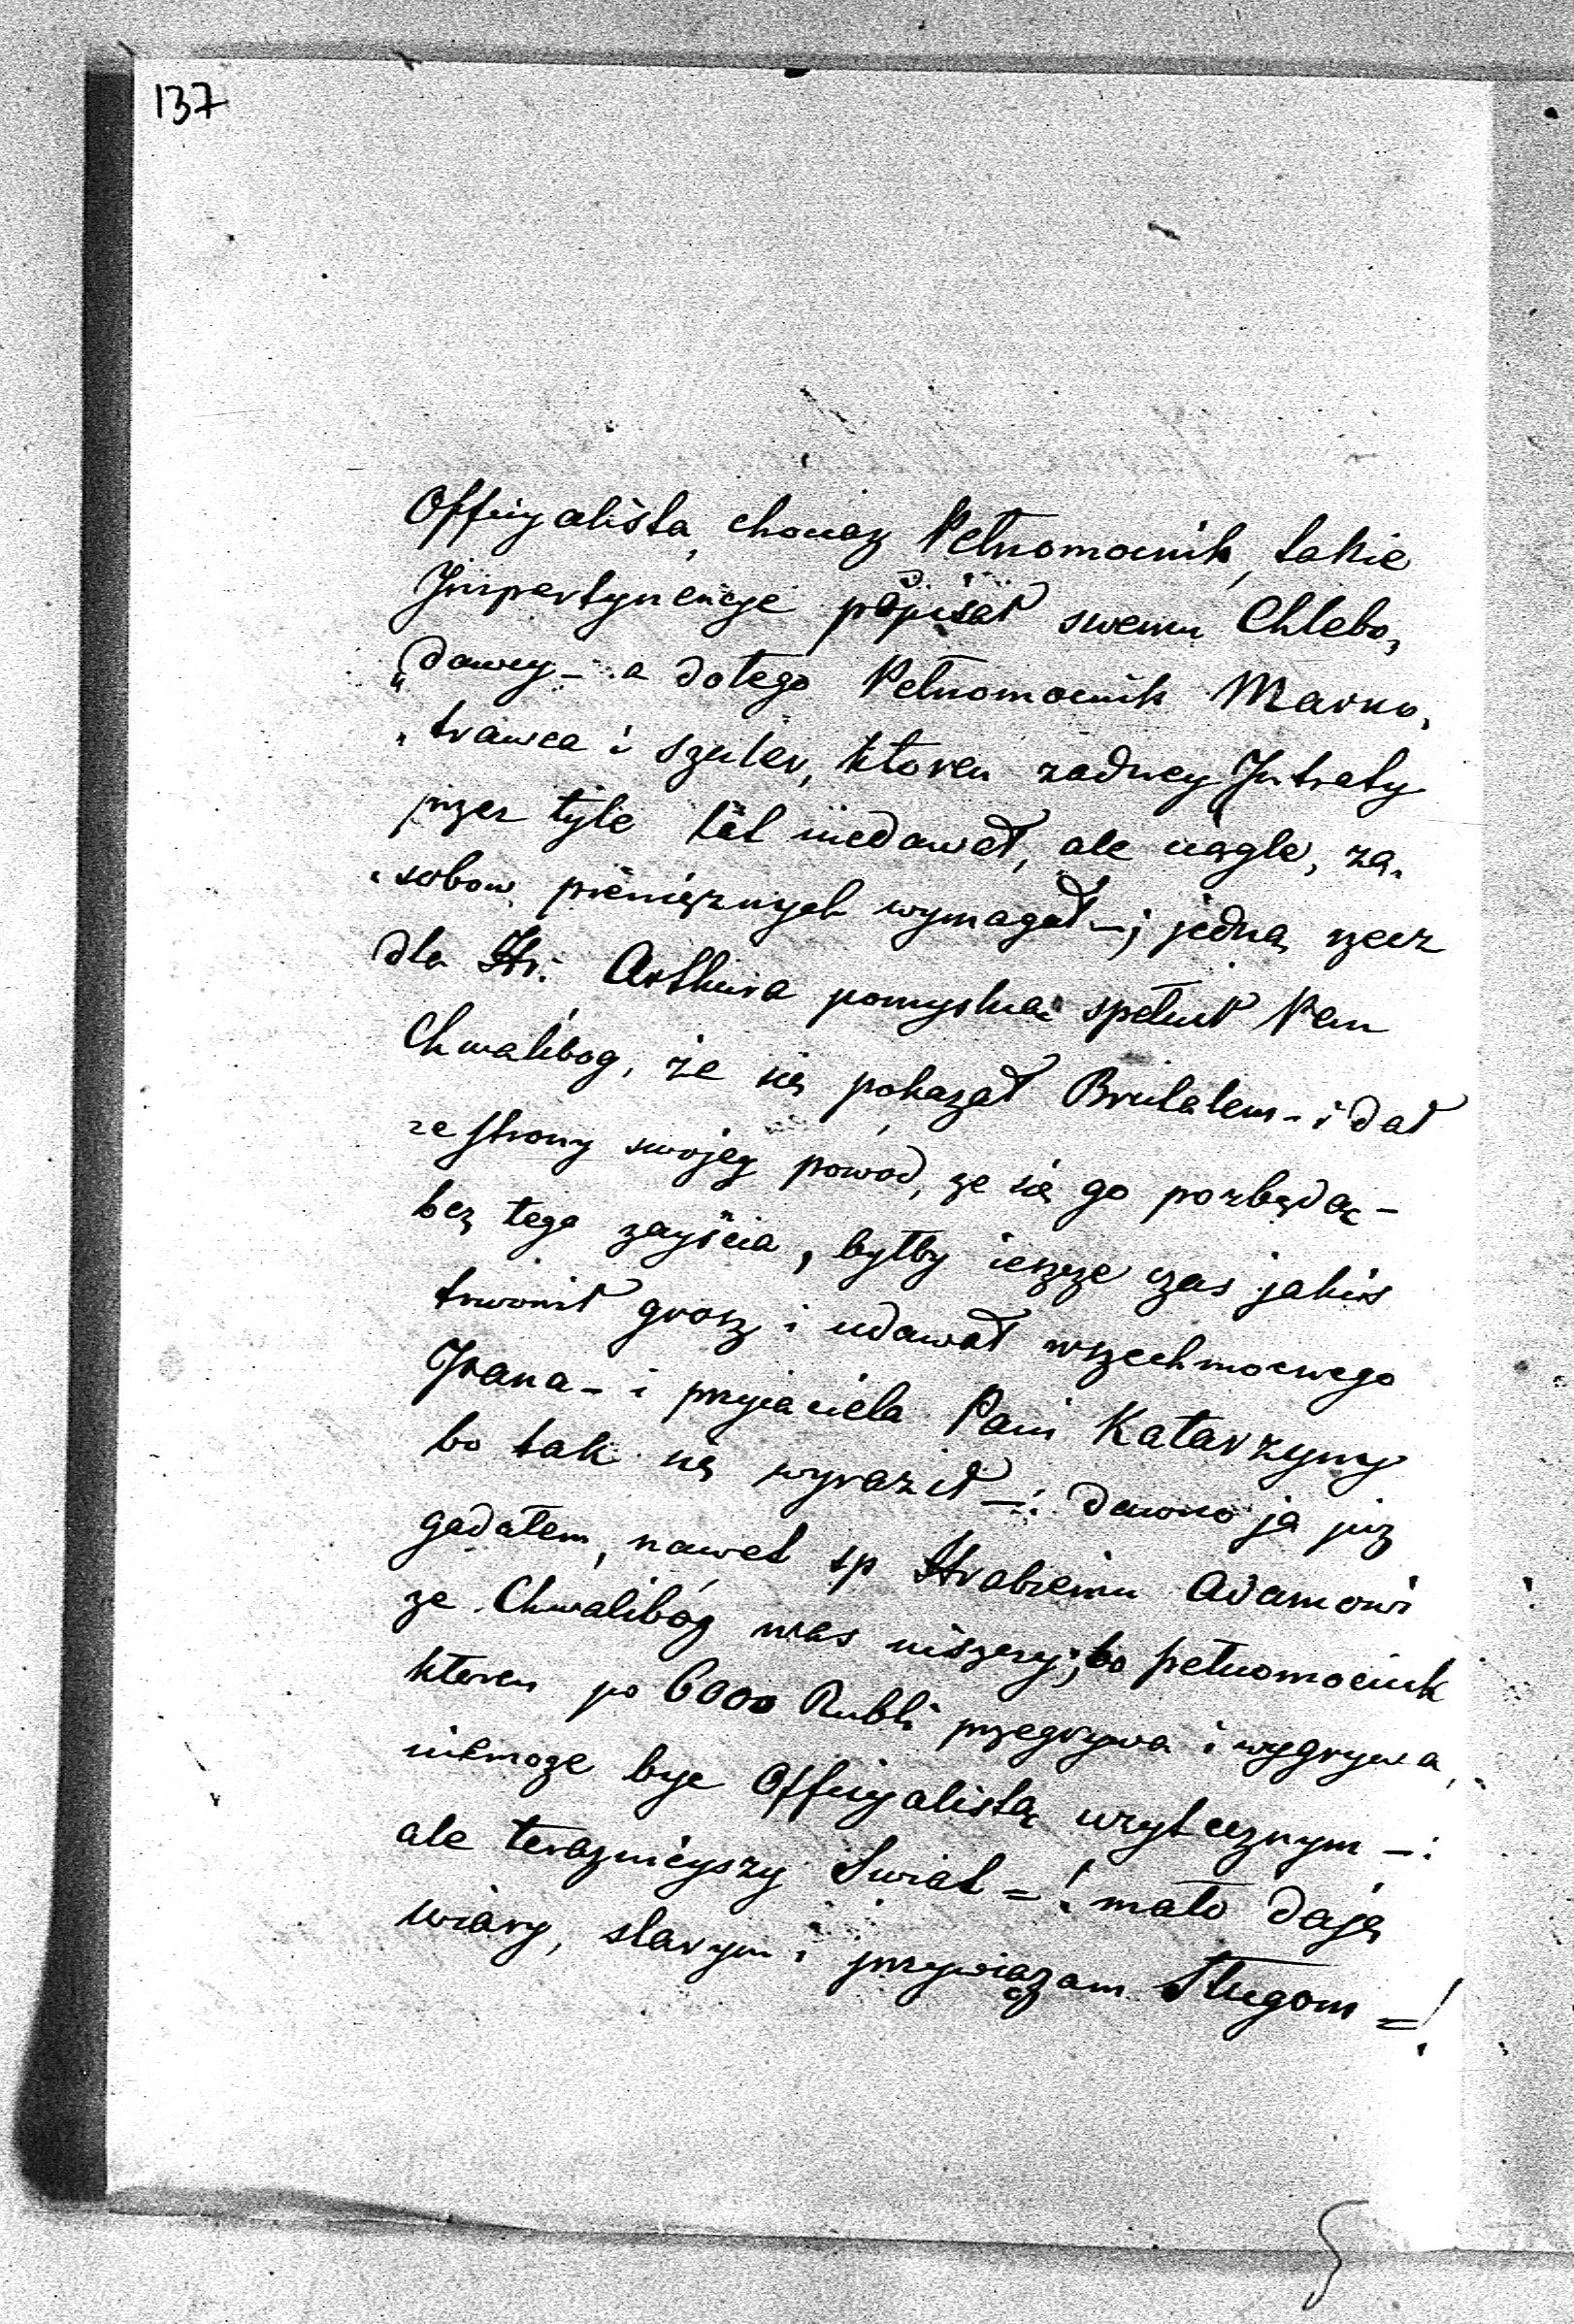 137
Officyalista, chociaz Pełnomocnik, takie
Jmpertynencye popisał swemu Chlebo„
„dawcy – a dotego Pełnomocnik Marno„
„trawca i szuler, ktoren zadney Jntraty
przez tyle lat niedawał, ale ciągle, za„
„sobow pienięznych wymagał –; jedną rzecz
dla Hr: Arthura pomyslną spełnił Pan
Chwalibog, że się pokazał Brutalem – i dał
ze strony swojey powod, ze się go pozbędą –
bez tego zayścia, byłby ieszcze czas jakis
trwonił grosz i udawał wszechmocnego
Pana – i przyiaciela Pani Katarzyny
bo tak się wyraził –: dawno ja juz
gadałem, nawet sp Hrabiemu Adamowi
ze Chwalibóg was niszczy; bo pełnomocnik
ktoren po 6000 Rubli przegrywa i wygrywa,
niemoze byc Officyalistą uzytecznym –:
ale teraznieyszy Swiat =! mało dają
wiary, starym i przywiązam Sługom =!